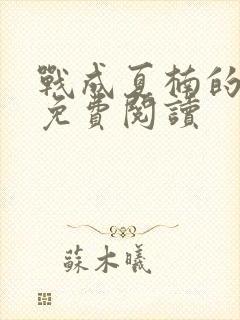 戰成夏楠的
免費閱讀
蘇木曦